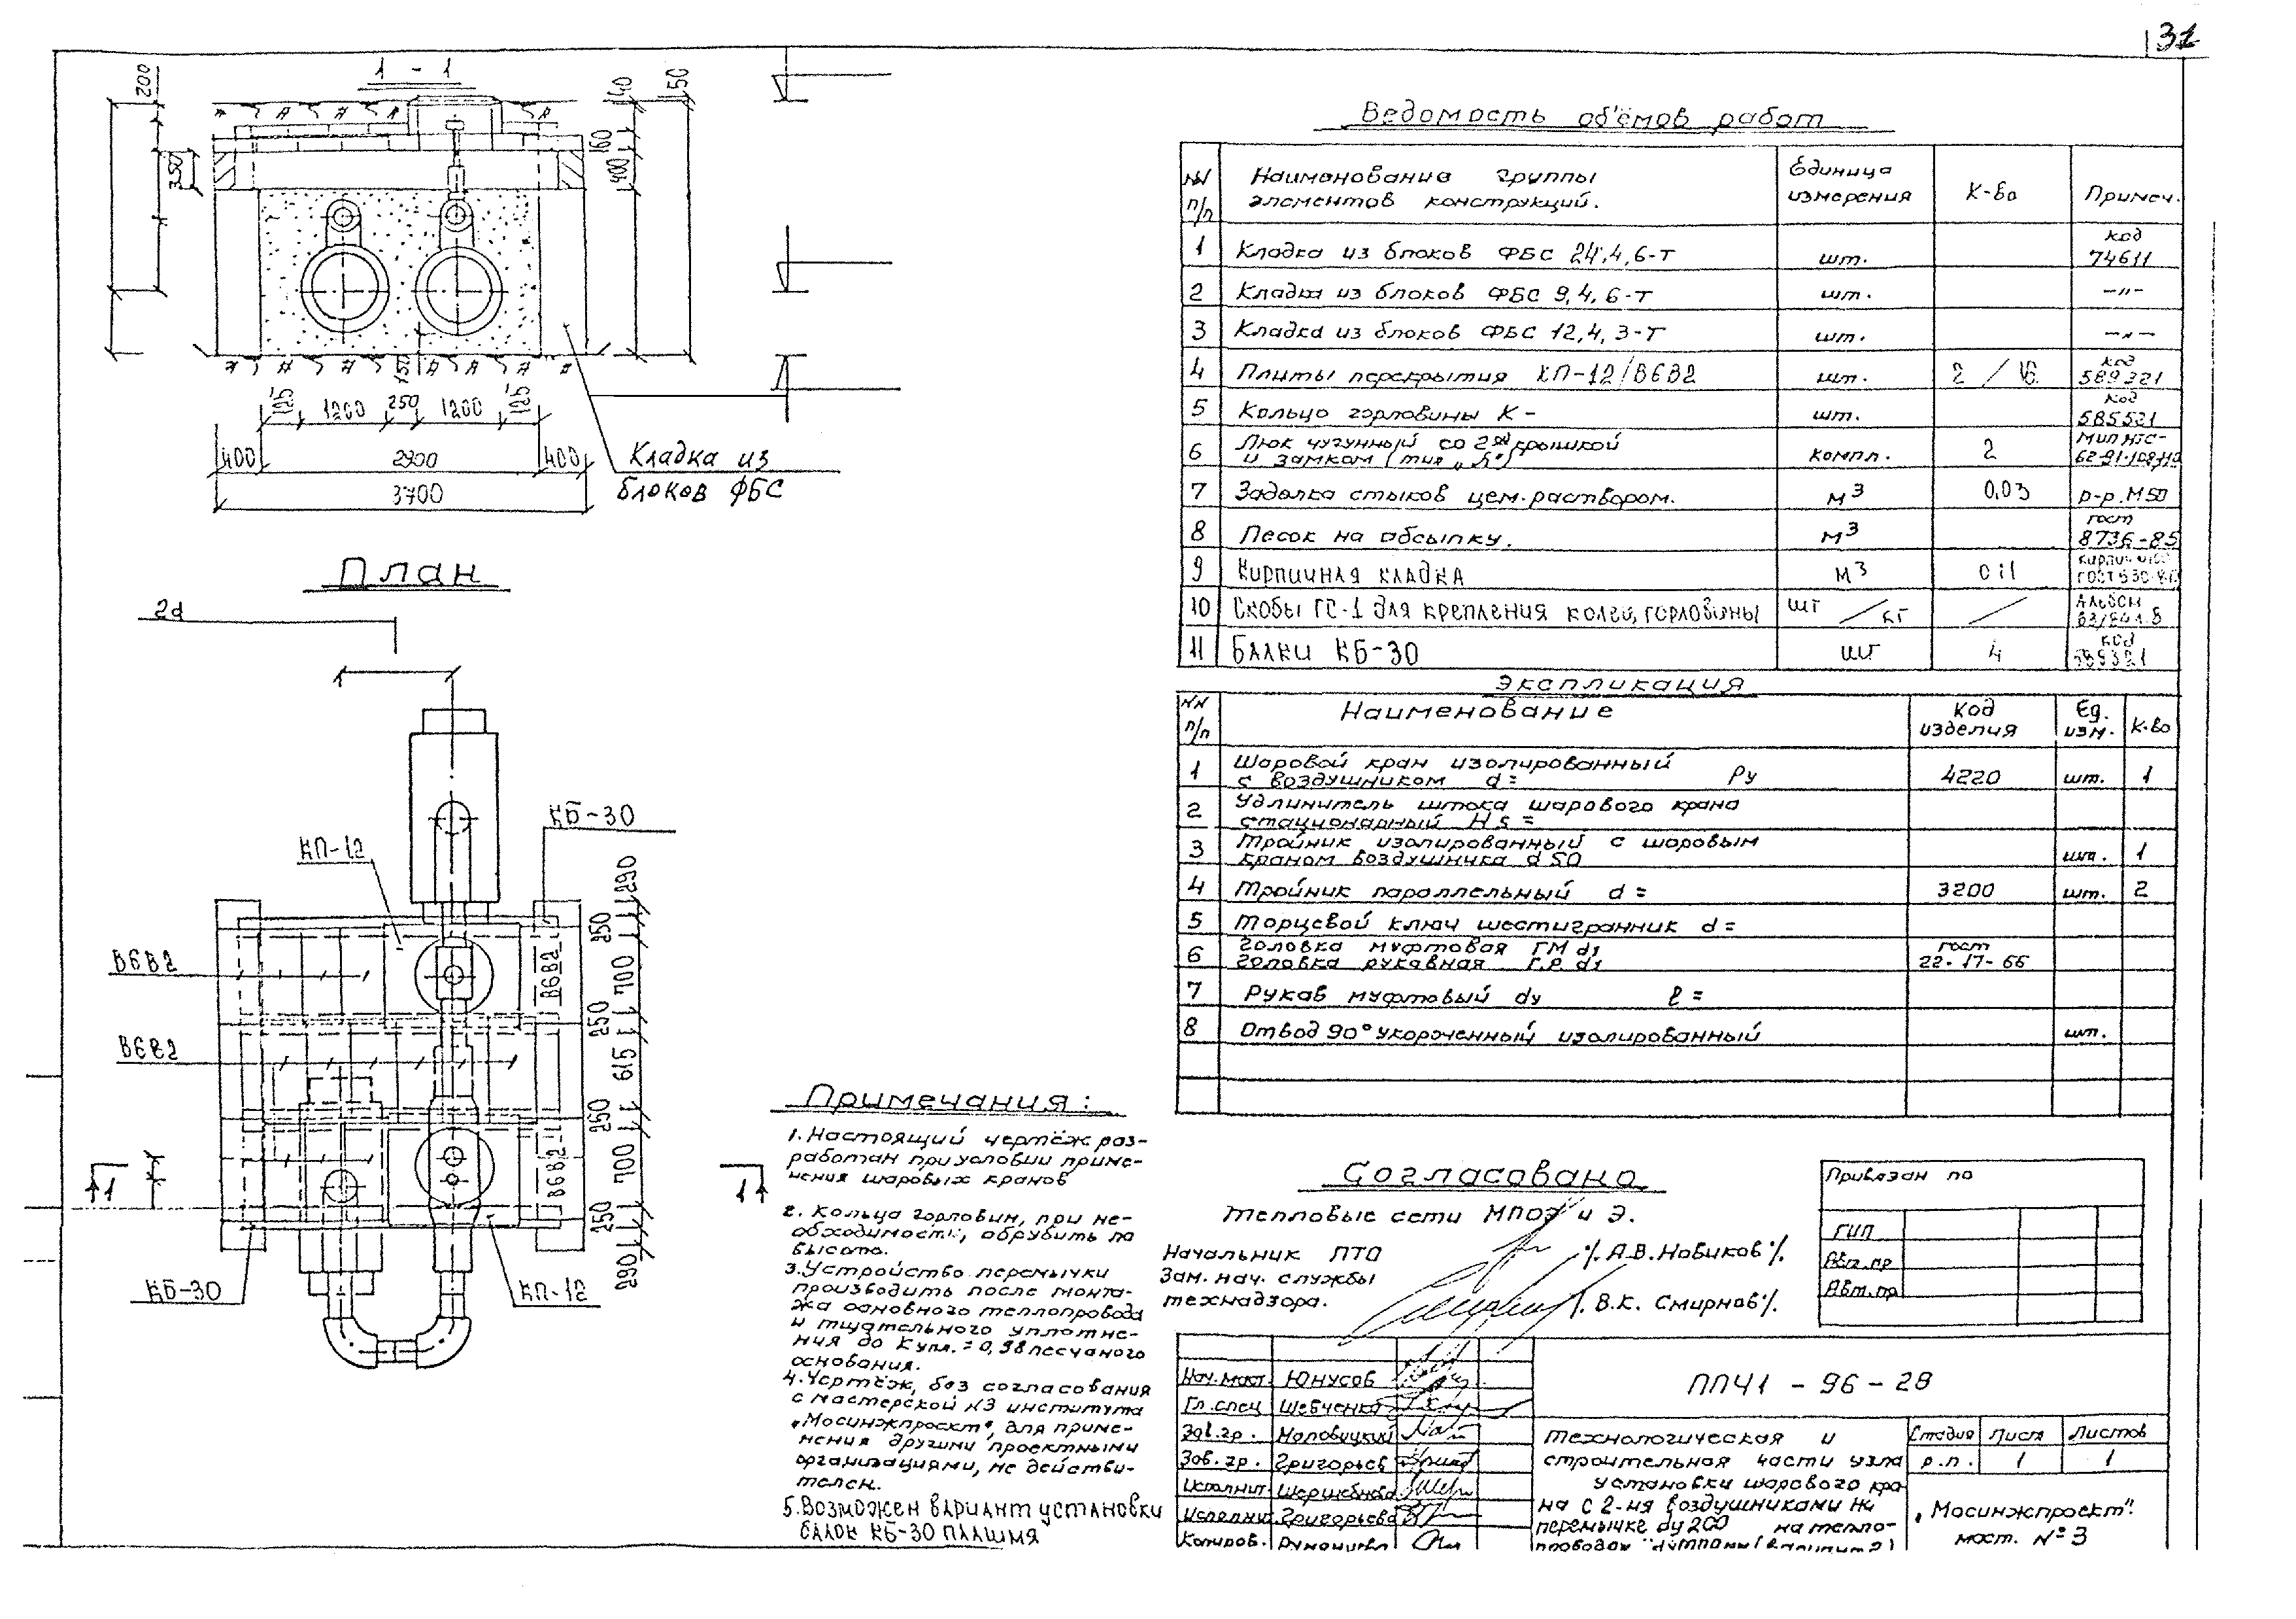 31
1 - 1
200
350
40
150
160
400
150
125
1200
250
1200
125
400
2900
400
3700
Кладка из
блоков ФБС
План
2d
КБ-30
КП-12
В6В2
В6В2
В6В2
В6В2
290
250
700
250
615
250
700
250
290
1
1
КБ-30
КП-12
Ведомость объёмов работ
NN п/п
Наименование группы
элементов конструкций.
Единица
измерения
К-во
Примеч.
1 Кладка из блоков ФБС 24,4,6-Т шт. код 74611
2 Кладка из блоков ФБС 9,4,6-Т шт. -"-
3 Кладка из блоков ФБС 12,4,3-Т шт. -"-
4 Плиты перекрытия КП-12/В6В2 шт. 2 / 16 код 589321
5 Кольцо горловины К- шт. код 585521
6 Люк чугунный со 2ой крышкой
и замком (тип „Л") компл. 2
7 Заделка стыков цем. раствором. м3 0,03 р-р. М50
8 Песок на обсыпку. м3 гост 8736-85
9 Кирпичная кладка м3 0,11
10 Скобы ГС-1 для крепления колец горловины шт / кг / Альбом
11 Балки КБ-30 шт 4 код 589321
Экспликация
NN п/п
Наименование
Код
изделия
Ед.
изм.
К-во
1 Шаровой кран изолированный
с воздушником d= Ру 4220 шт. 1
2 Удлинитель штока шарового крана
стационарный Hs =
3 Тройник изолированный с шаровым
краном воздушника d 50 шт. 1
4 Тройник параллельный d= 3200 шт. 2
5 Торцевой ключ шестигранник d=
6 Головка муфтовая ГМ d1
головка рукавная Г.Р. d1 гост 22-17-66
7 Рукав муфтовый dу ℓ =
8 Отвод 90° укороченный изолированный шт.
Примечания:
1. Настоящий чертёж раз-
работан при условии приме-
нения шаровых кранов
2. Кольца горловин, при не-
обходимости, обрубить по
высоте.
3. Устройство перемычки
производить после монта-
жа основного теплопровода
и тщательного уплотне-
ния до К упл. = 0,98 песчаного
основания.
4. Чертёж, без согласования
с мастерской №3 института
„Мосинжпроект", для приме-
нения другими проектными
организациями, не действи-
телен.
5. Возможен вариант установки
балок КБ-30 плашмя
Согласовано
Тепловые сети МПОЭ и Э.
Начальник ПТО /А.В. Новиков/.
Зам. нач. службы
технадзора. /. В.К. Смирнов/.
Привязан по
ГИП
Авт. пр
Авт. пр
Нач. маст. Юнусов
Гл. спец Шевченко
Зав. гр. Маловицкий
Зав. гр. Григорьев
Исполнит
Исполнит Григорьева
Копиров.
ППЧ1 - 96 - 28
Технологическая и
строительная части узла
установки шарового кра-
на с 2-мя воздушниками на
перемычке dу 200 на тепло-
Стадия Лист Листов
р.п. 1 1
„Мосинжпроект".
маст. №3